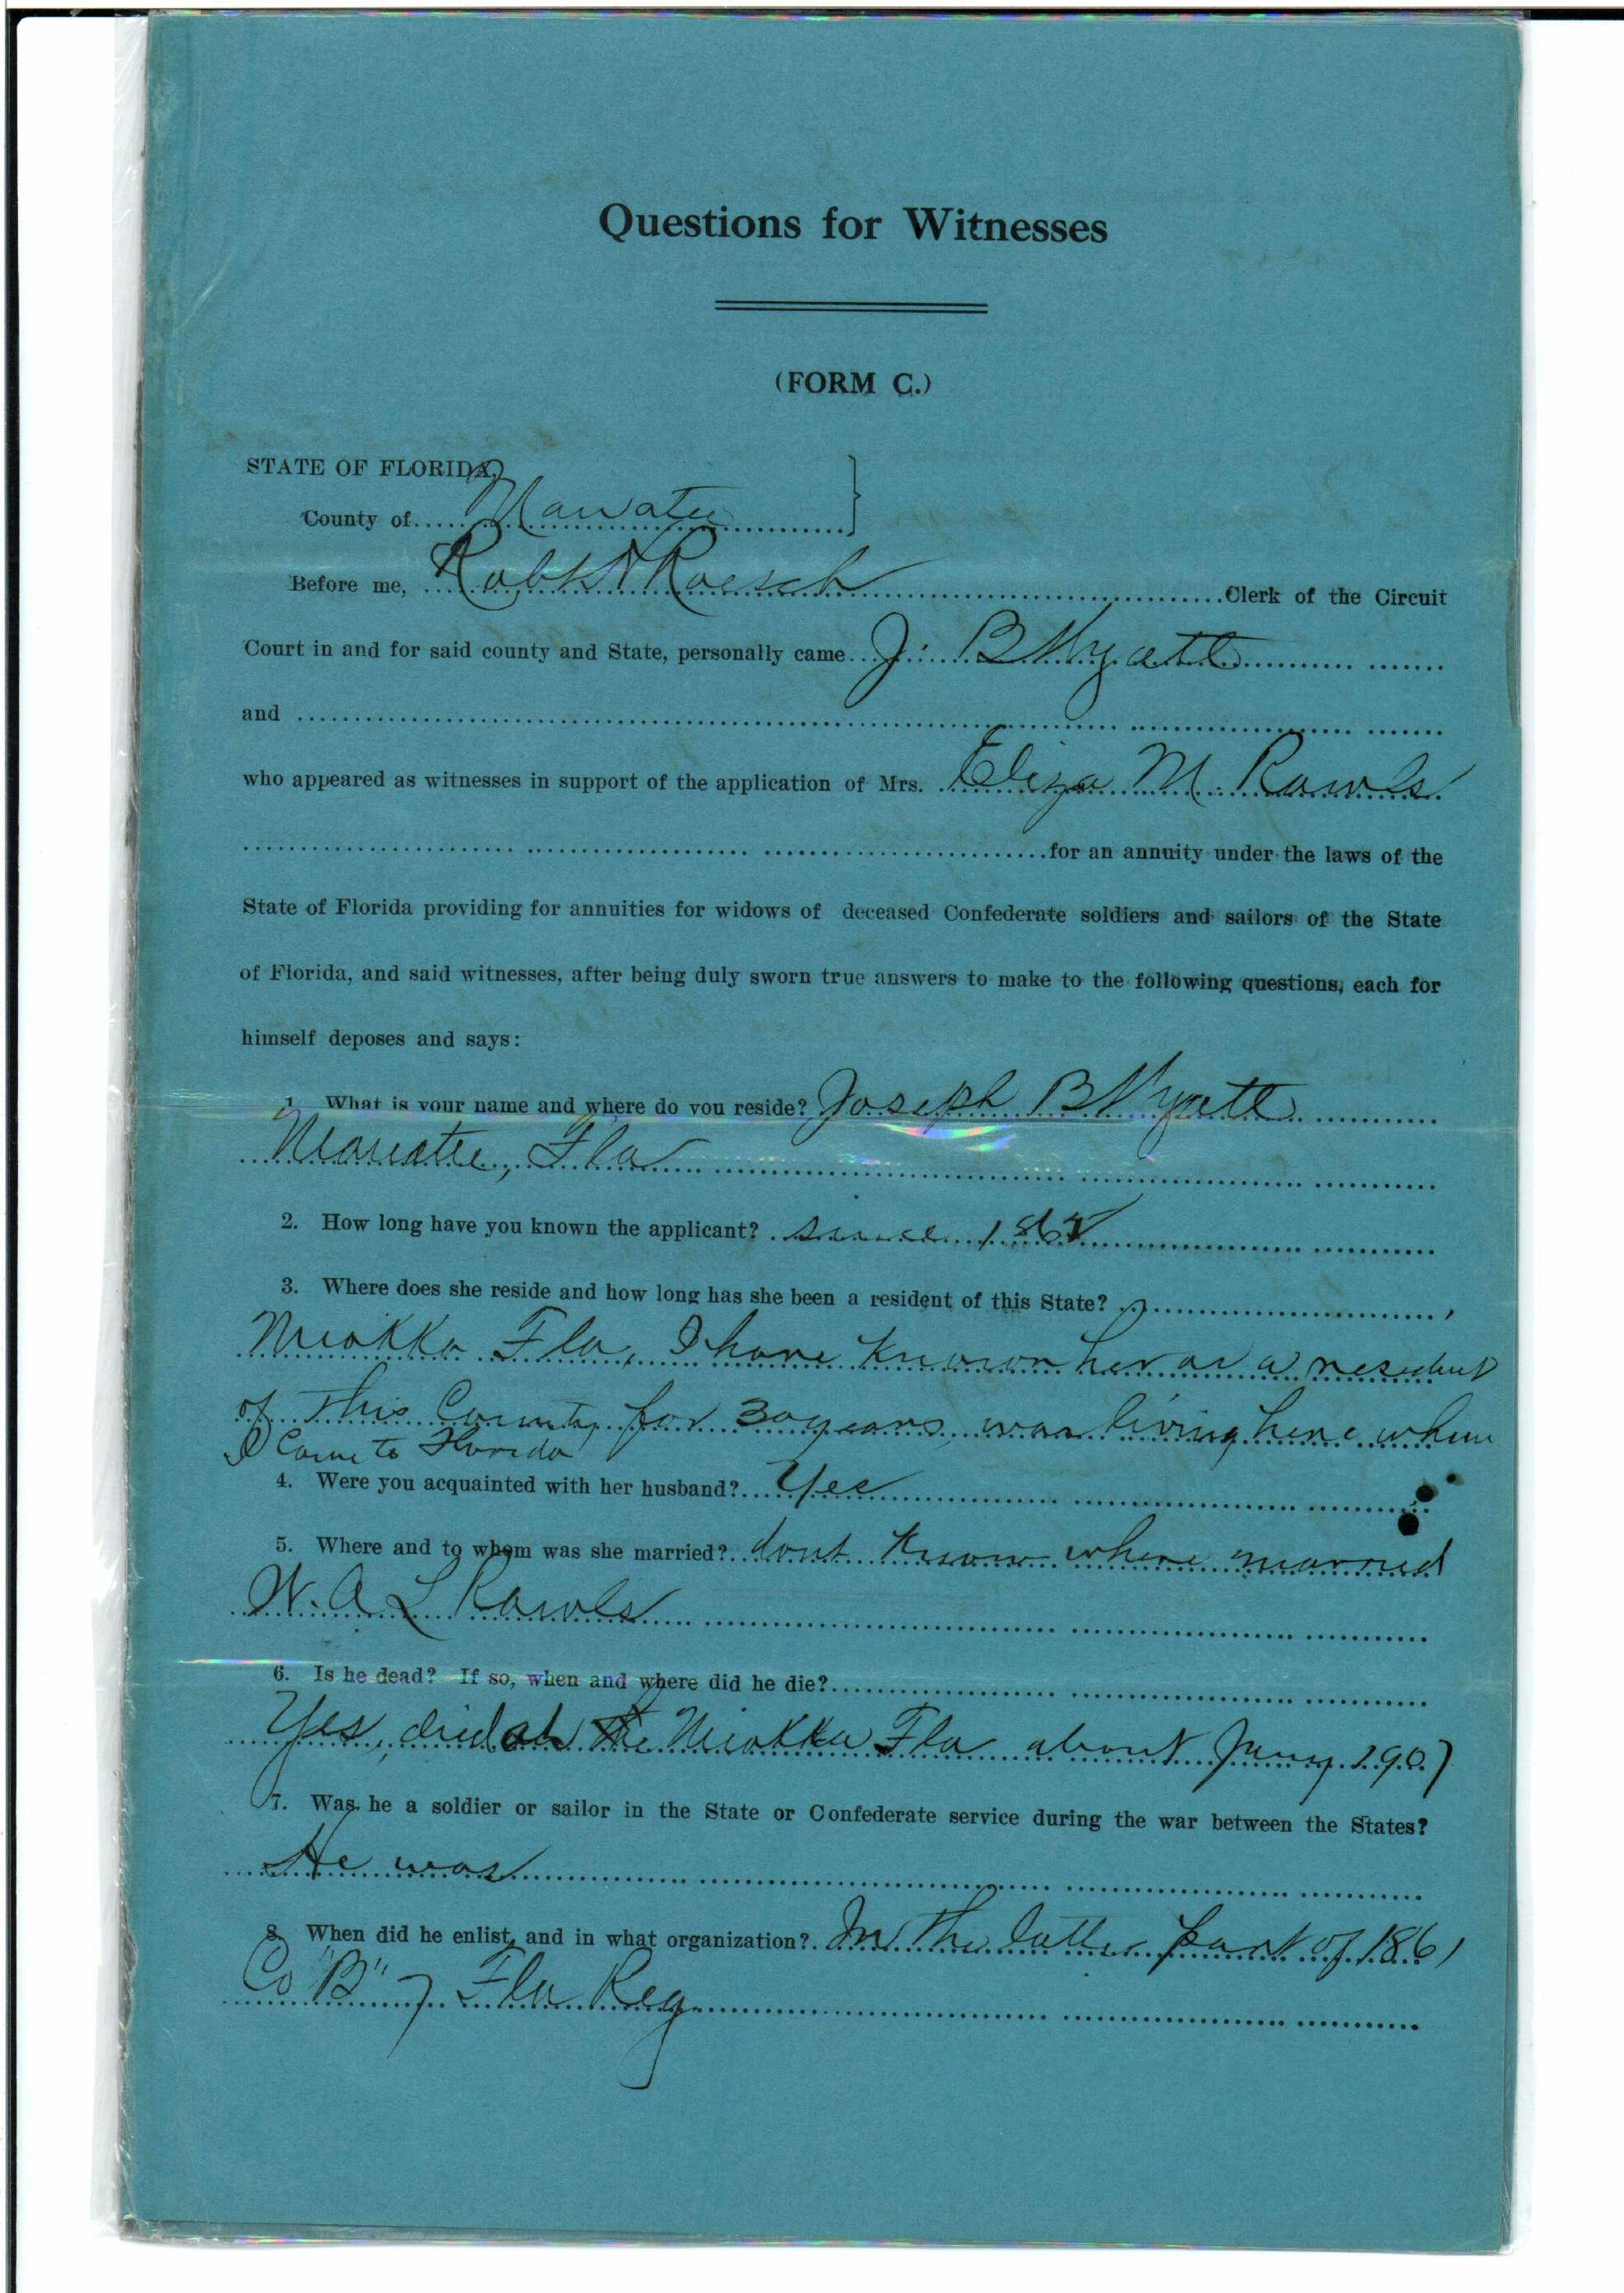 Questions for Witnesses
(FORM C.)
STATE OF FLORIDA,
County of Manatee
Before me, Robt H Roesch Clerk of the Circuit
Court in and for said county and State, personally came J. B Wyatt
and
who appeared as witnesses in support of the application of Mrs. Eliza M Rawls
for an annuity under the laws of the
State of Florida providing for annuities for widows of deceased Confederate soldiers and sailors of the State
of Florida, and said witnesses, after being duly sworn true answers to make to the following questions, each for
himself deposes and says:
1. What is your name and where do you reside? Joseph B Wyatt
Manatee, Fla
2. How long have you known the applicant? since
3. Where does she reside and how long has she been a resident of this State?
Miakka Fla, I have known her as a resident
of this County for 30 years, was living here when
I Came to Florida
4. Were you acquainted with her husband? Yes
5. Where and to whom was she married? dont know where married
W. A L Rawls
6. Is he dead? If so, when and where did he die?
Yes, died at the Miakka Fla about Jany 1907
7. Was he a soldier or sailor in the State or Confederate service during the war between the States?
He was
8. When did he enlist, and in what organization? In the latter part of 1861
Co "B" 7 Fla Reg